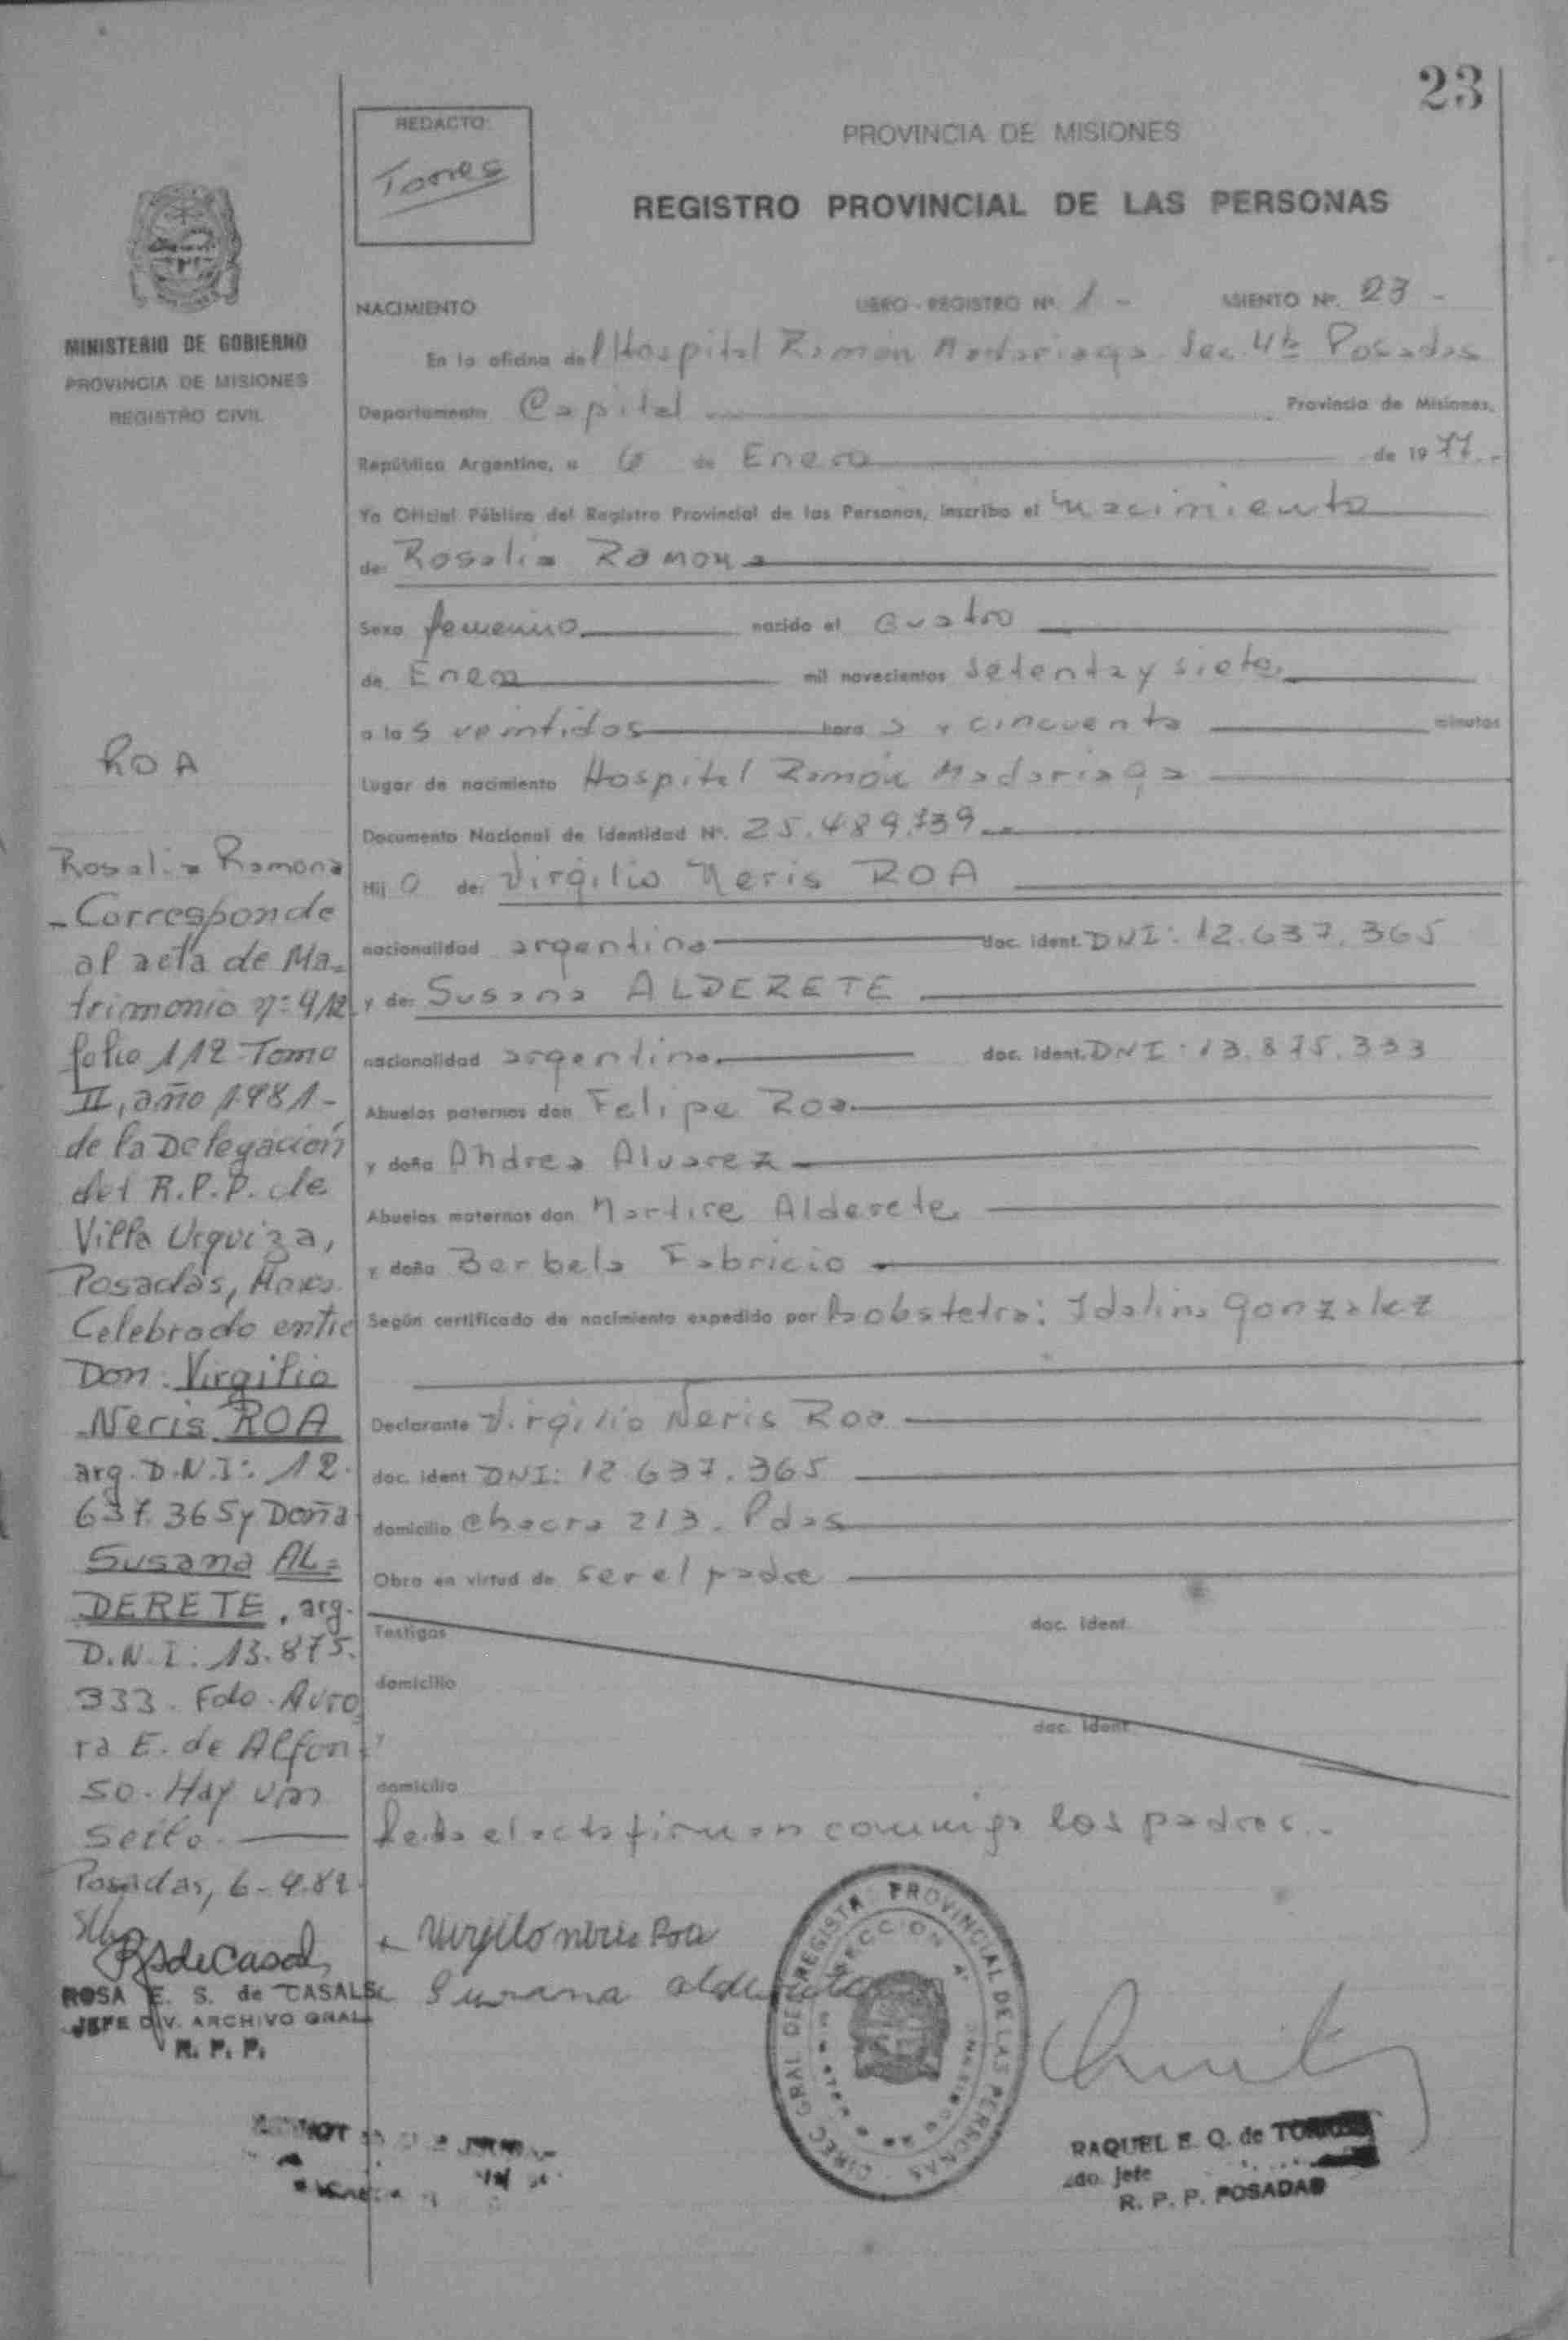 23
REDACTO:
Torres
PROVINCIA DE MISIONES
REGISTRO PROVINCIAL DE LAS PERSONAS
MINISTERIO DE GOBIERNO
PROVINCIA DE MISIONES
REGISTRO CIVIL
NACIMIENTO LIBRO - REGISTRO Nº. 1 - ASIENTO Nº. 23 -
En la oficina del Hospital Ramón Madariaga Sec. 4ta Posadas
Departamento Capital Provincia de Misiones,
República Argentina, a 6 de Enero de 1977.-
Yo Oficial Público del Registro Provincial de las Personas, inscribo el nacimiento
de: Rosalia Ramona
Sexo femenino nacido el cuatro
de Enero mil novecientos setenta y siete
a las veintidos hora s y cincuenta minutos
Lugar de nacimiento Hospital Ramón Madariaga
Documento Nacional de Identidad Nº. 25.489.739.-
Hij O de: Virgilio Neris ROA
nacionalidad argentino doc. ident. DNI: 12.637.365
y de: Susana ALDERETE
nacionalidad argentina doc. ident. DNI: 13.875.333
Abuelos paternos don Felipe Roa
y doña Andrea Alvarez
Abuelos maternos don Martire Alderete
y doña Berbela Fabricio
Según certificado de nacimiento expedido por obstetra: Idalina Gonzalez
Declarante Virgilio Neris Roa
doc. ident DNI: 12.637.365
domicilio Chacra 213. Pdas
Obra en virtud de ser el padre
Testigos doc. ident.
domicilio
doc. ident.
y
domicilio
Leida el acta firman conmigo los padres.-
ROA
Rosalia Ramona
- Corresponde
al acta de Ma-
trimonio nº 412
folio 112 Tomo
II, año 1981-
de la Delegación
del R.P.P. de
Villa Urquiza,
Posadas, Mnes.
Celebrado entre
Don: Virgilio
Neris ROA
arg. D.N.I: 12.
637.365 y Doña
Susana AL=
DERETE, arg.
D.N.I: 13.875.
333. Fdo. Auro
ra E. de Alfon
so. Hay un
sello.
Posadas, 6-4.82.
RSdeCasals
ROSA E. S. de CASALS
JEFE DIV. ARCHIVO GRAL.
R. P. P.
Virgilo neris Roa
Susana alderete
DIREC. GRAL. DEL REGISTRO PROVINCIAL DE LAS PERSONAS
SECCION 4ª
MISIONES
RAQUEL E. Q. de TORRES
2do. Jefe
R. P. P. POSADAS